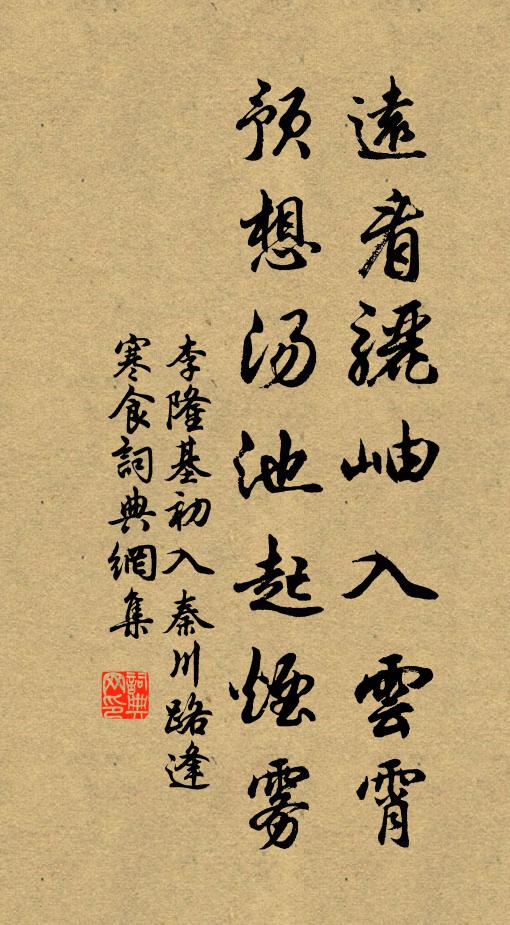 遠看驪岫入雲霄
預想湯池起煙霧
李隆基初入秦川路逢
寒食詞典網集
詞典网印